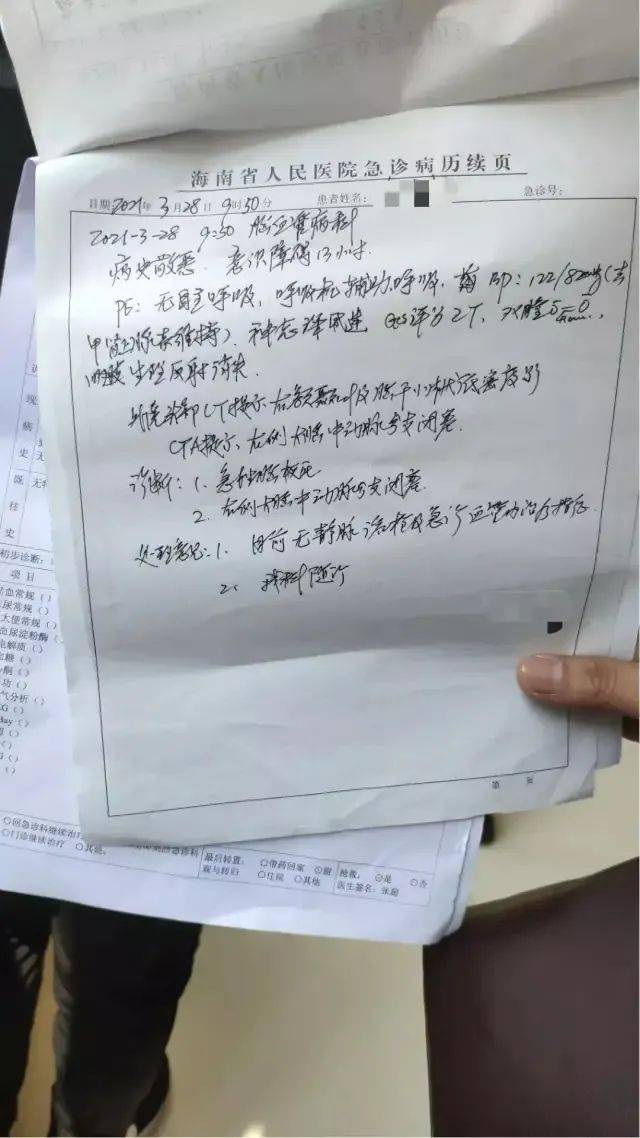 海南省人民医院急诊病历续页
日期:2021年3月28日9时50分 患者姓名: 急诊号:
2021-3-28 9:50 脑血管病科
病史敬悉. 意识障碍13小时.
PE: 无自主呼吸, 呼吸机辅助呼吸, BP: 122/82mmHg(去
甲肾上腺素维持). 神志深昏迷 GCS评分2T, 双瞳5
生理反射消失.
头部CT提示 右额颞叶及脑干小脑低密度影
CTA提示 右侧大脑中动脉分支闭塞.
诊断: 1. 急性脑梗死
2. 右侧大脑中动脉分支闭塞.
处理意见: 1. 目前无静脉溶栓及急诊血管内治疗指征.
2. 我科随诊
第 页
现
病
史
既
往
史
初步诊断:
项目
血常规()
尿常规()
大便常规()
血尿淀粉酶()
电解质()
血糖()
气分析()
○回急诊科继续治疗
○门诊继续治疗 ○其他,
最后转置: ○带药回家 抢救: 是 否
观与转归 ○住院 ○其他 医生签名:张